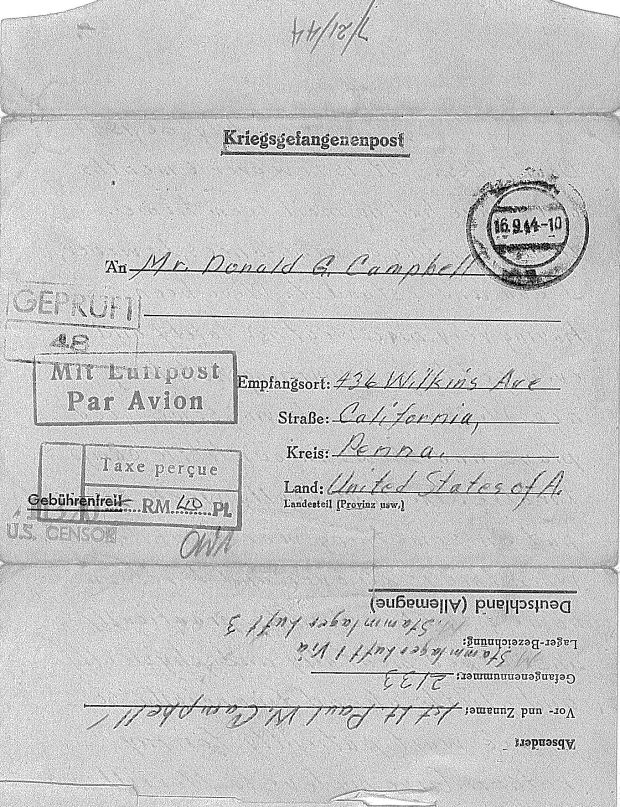 7/21/44
Kriegsgefangenenpost
16.9.44-10
An Mr. Donald G. Campbell
GEPRÜFT
48
Mit Luftpost
Par Avion
Empfangsort: 436 Wilkins Ave
Straße: California,
Kreis: Penna.
Land: United States of A.
Landesteil (Provinz usw.)
Taxe perçue
Gebührenfrei! RM. 40 Pf.
U.S. CENSOR
Deutschland (Allemagne)
M. Stammlager Luft 3
Lager-Bezeichnung:
M. Stammlager Luft 1 Via
Gefangenennummer: 2133
Vor- und Zuname: 1st Lt. Paul W. Campbell
Absender: